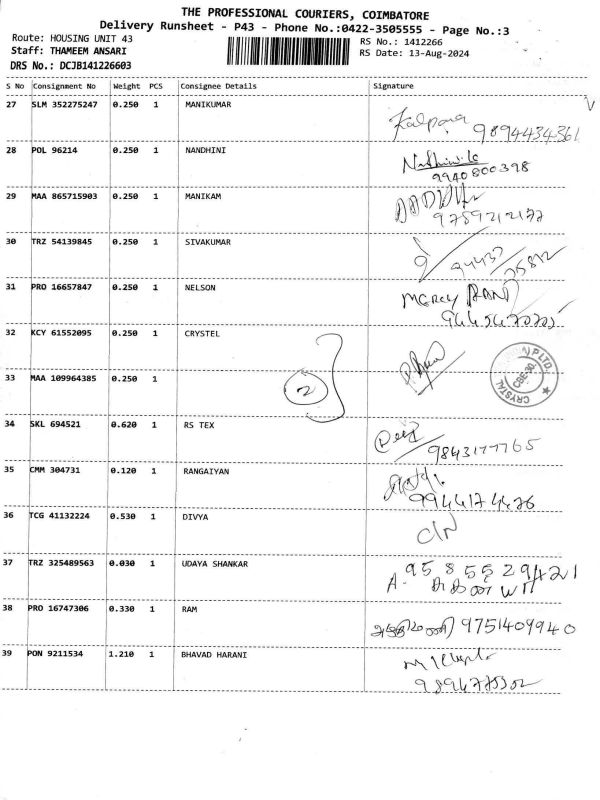 THE PROFESSIONAL COURIERS, COIMBATORE
Delivery Runsheet - P43 - Phone No.:0422-3505555 - Page No.:3
Route: HOUSING UNIT 43
RS No.: 1412266
Staff: THAMEEM ANSARI
RS Date: 13-Aug-2024
DRS No.: DCJB141226603
S No Consignment No Weight PCS Consignee Details Signature
27 SLM 352275247 0.250 1 MANIKUMAR
Kalpana 9894434361
28 POL 96214 0.250 1 NANDHINI
9940800398
29 MAA 865715903 0.250 1 MANIKAM
30 TRZ 54139845 0.250 1 SIVAKUMAR
31 PRO 16657847 0.250 1 NELSON
MERCY RANI
32 KCY 61552095 0.250 1 CRYSTEL
33 MAA 109964385 0.250 1
2
CRYSTAL PLTD. CBE-30.
34 SKL 694521 0.620 1 RS TEX
9843177765
35 CMM 304731 0.120 1 RANGAIYAN
9944174426
36 TCG 41132224 0.530 1 DIVYA
C/N
37 TRZ 325489563 0.030 1 UDAYA SHANKAR
9585529421
38 PRO 16747306 0.330 1 RAM
9751409940
39 PON 9211534 1.210 1 BHAVAD HARANI